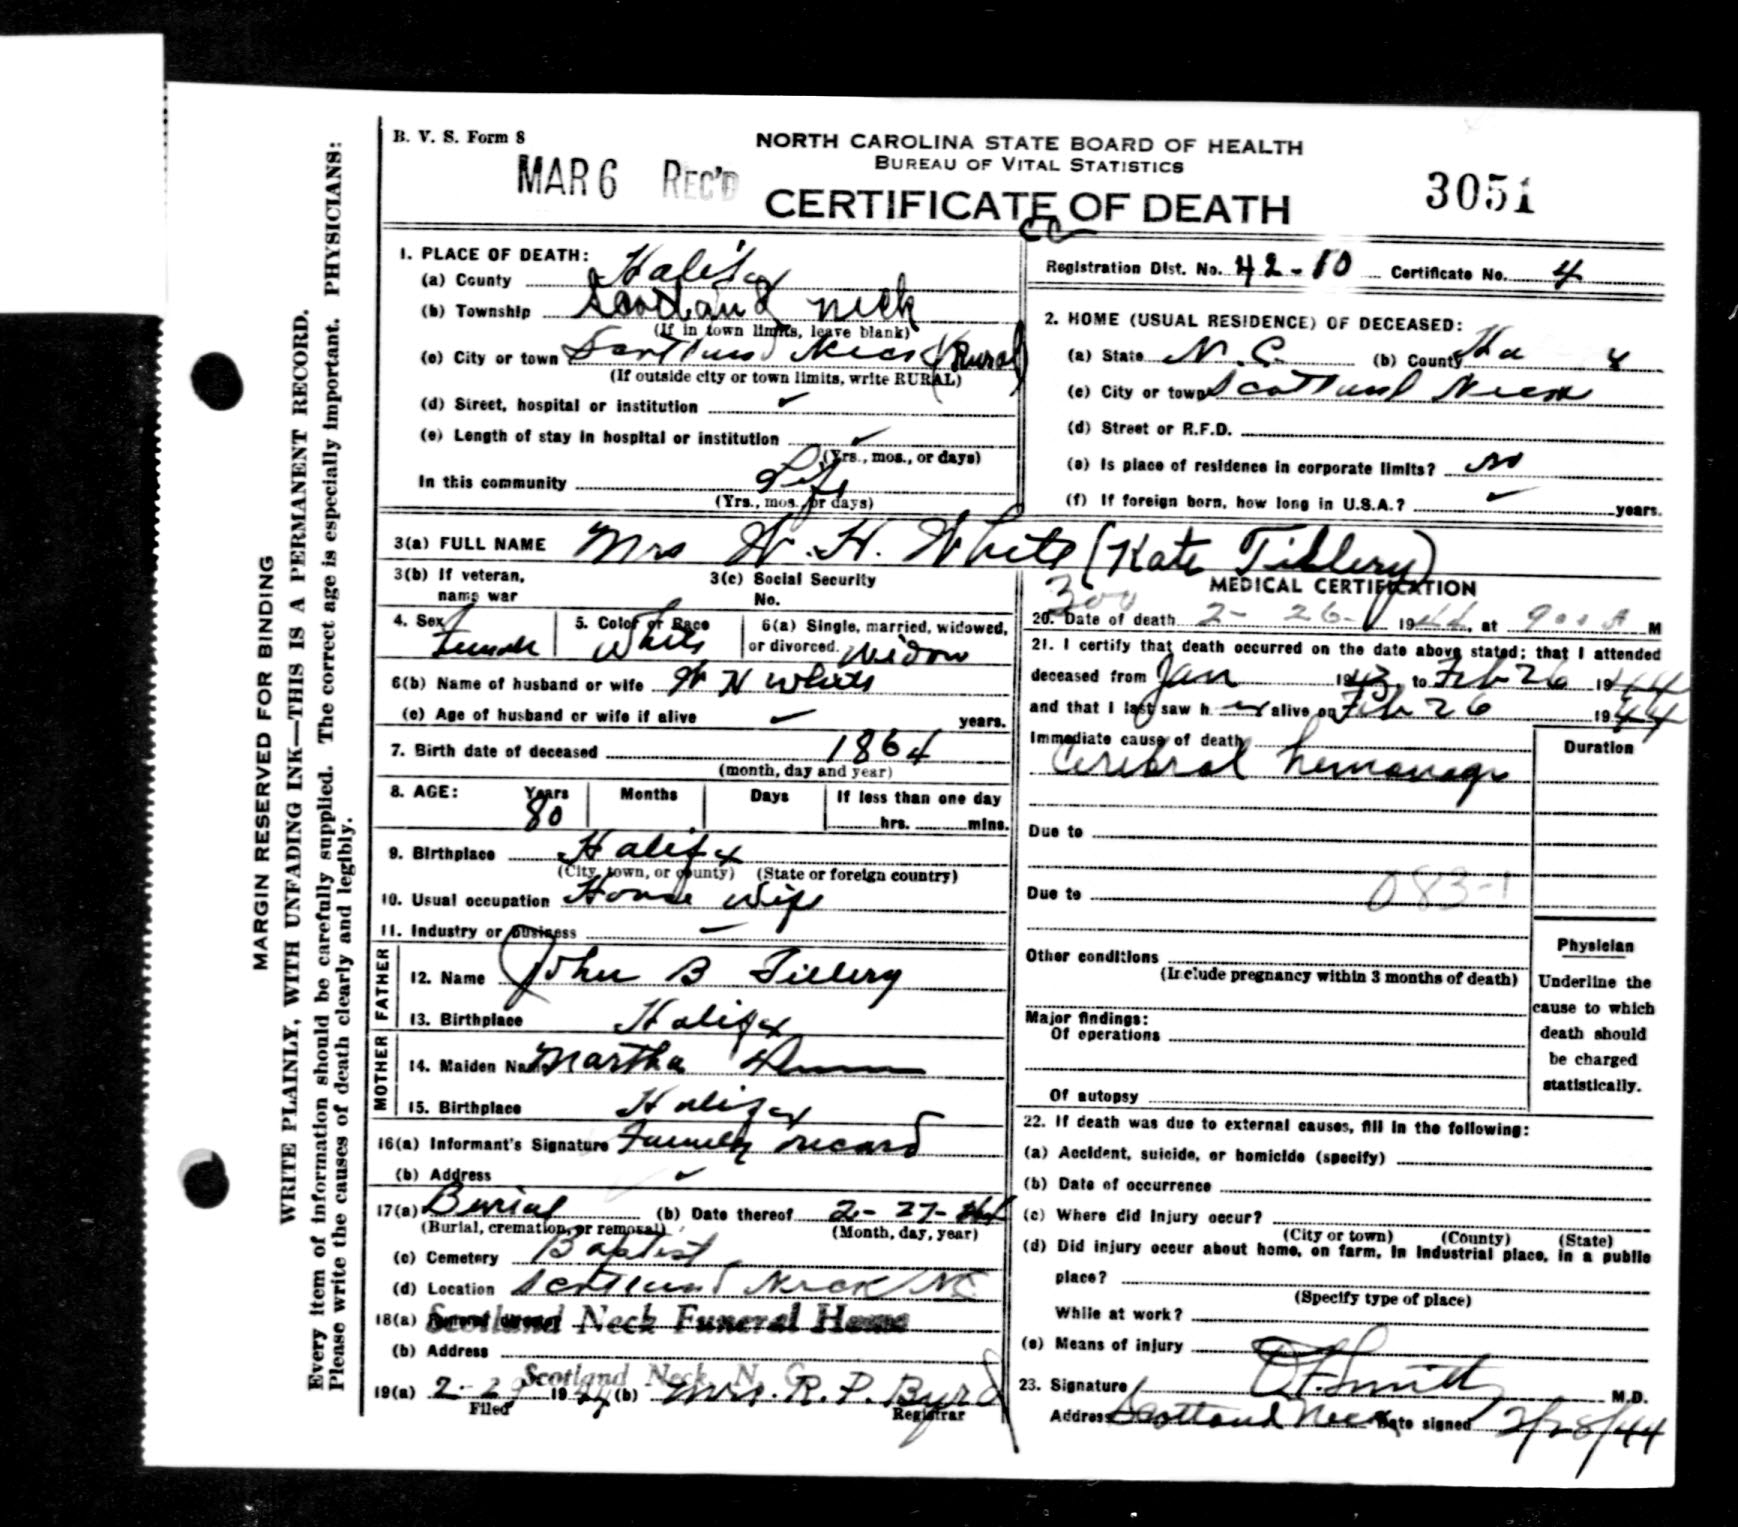 B. V. S. Form 8
NORTH CAROLINA STATE BOARD OF HEALTH
BUREAU OF VITAL STATISTICS
MAR 6 REC'D
CERTIFICATE OF DEATH
3051
MARGIN RESERVED FOR BINDING
WRITE PLAINLY, WITH UNFADING INK—THIS IS A PERMANENT RECORD.
Every item of information should be carefully supplied. The correct age is especially important. PHYSICIANS:
Please write the causes of death clearly and legibly.
1. PLACE OF DEATH:
(a) County Halifax
(b) Township Scotland Neck
(If in town limits, leave blank)
(c) City or town Scotland Neck (Rural)
(If outside city or town limits, write RURAL)
(d) Street, hospital or institution ✓
(e) Length of stay in hospital or institution ✓
(Yrs., mos., or days)
In this community Life
(Yrs., mos., or days)
Registration Dist. No. 42-10 Certificate No. 4
2. HOME (USUAL RESIDENCE) OF DECEASED:
(a) State N. C. (b) County
(c) City or town Scotland Neck
(d) Street or R.F.D.
(e) Is place of residence in corporate limits? no
(f) If foreign born, how long in U.S.A.? ✓ years.
3(a) FULL NAME Mrs W. H. White (Kate Tillery)
3(b) If veteran, name war
3(c) Social Security No.
4. Sex Female
5. Color or Race White
6(a) Single, married, widowed, or divorced. Widow
6(b) Name of husband or wife W H White
(c) Age of husband or wife if alive ✓ years.
7. Birth date of deceased 1864
(month, day and year)
8. AGE: Years 80 Months Days If less than one day
hrs. mins.
9. Birthplace Halifax
(City, town, or county) (State or foreign country)
10. Usual occupation House wife
11. Industry or business
FATHER
12. Name John B Tillery
13. Birthplace Halifax
MOTHER
14. Maiden Name Martha
15. Birthplace Halifax
16(a) Informant's Signature Family record
(b) Address ✓
17(a) Burial (b) Date thereof 2-27-44
(Burial, cremation, or removal) (Month, day, year)
(c) Cemetery Baptist
(d) Location Scotland Neck NC
18(a) Funeral director Scotland Neck Funeral Home
(b) Address
Scotland Neck, N. C.
19(a) 2-29 1944 (b) Mrs. R. P. Byrd
Filed Registrar
MEDICAL CERTIFICATION
300
20. Date of death 2-26- 1944, at 900 A M
21. I certify that death occurred on the date above stated; that I attended
deceased from Jan 1943 to Feb 26 1944
and that I last saw her alive on Feb 26 1944
Immediate cause of death
Cerebral hemorrage
Duration
Due to
Due to
083-1
Other conditions
(Include pregnancy within 3 months of death)
Major findings:
Of operations
Of autopsy
Physician
Underline the
cause to which
death should
be charged
statistically.
22. If death was due to external causes, fill in the following:
(a) Accident, suicide, or homicide (specify)
(b) Date of occurrence
(c) Where did injury occur?
(City or town) (County) (State)
(d) Did injury occur about home, on farm, in industrial place, in a public
place?
(Specify type of place)
While at work?
(e) Means of injury
23. Signature Smith M.D.
Address Scotland Neck Date signed 2/28/44